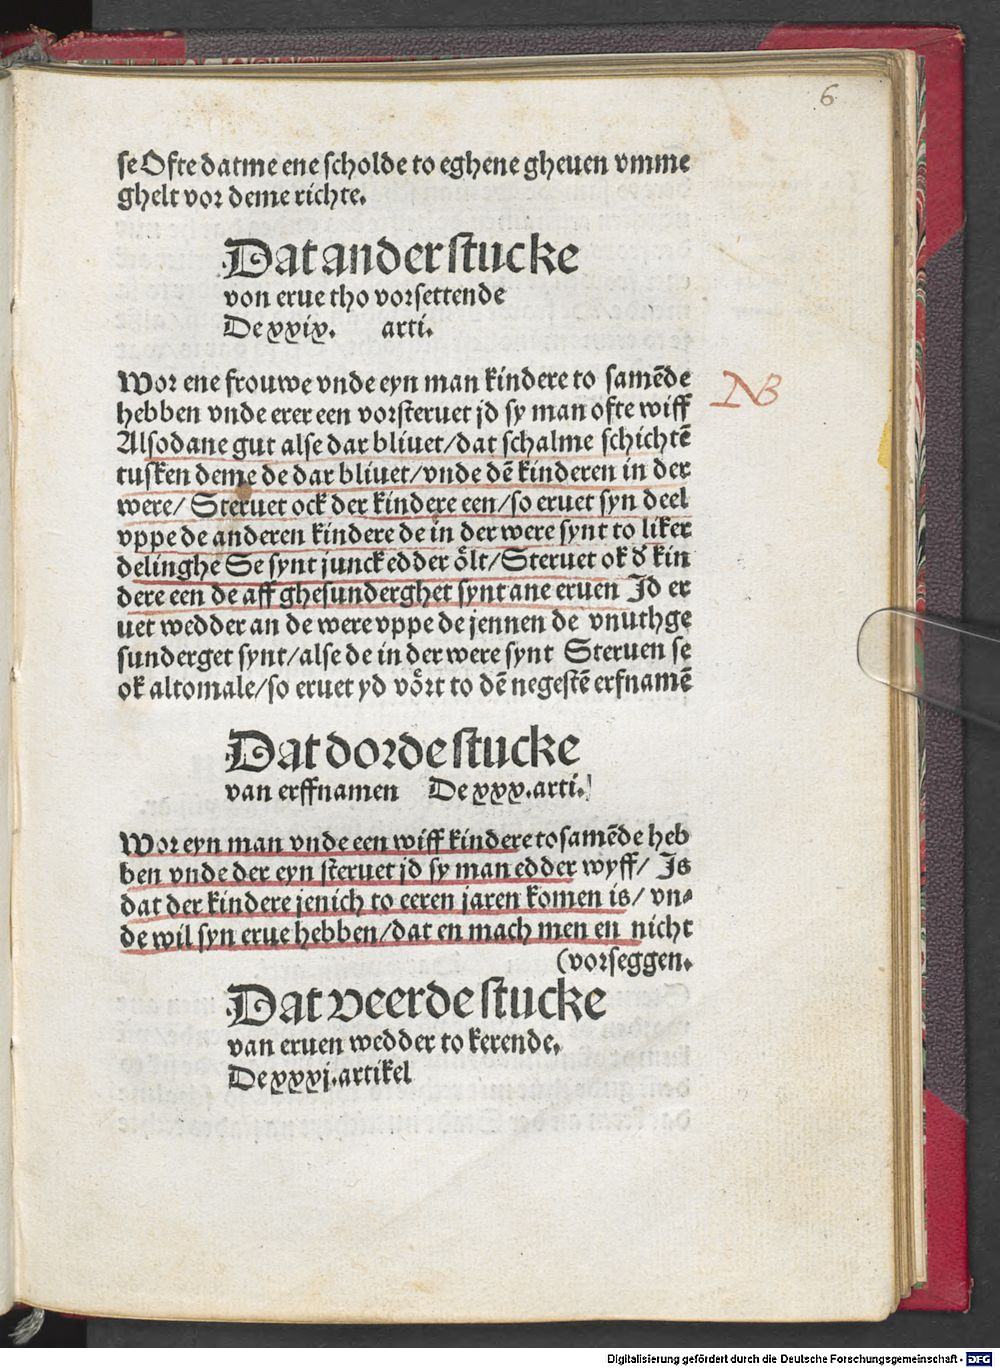 6
se Ofte datme ene scholde to eghene gheuen vmme
ghelt vor deme richte.
Dat ander stucke
von erue tho vorsettende
De xxix. arti.
Wor ene frouwe vnde eyn man kindere to samēde
hebben vnde erer een vorsteruet jd sy man ofte wiff
NB
Alsodane gut alse dar bliuet/dat schalme schichtē
tusken deme de dar bliuet/vnde dē kinderen in der
were/ Steruet ock der kindere een/so eruet syn deel
vppe de anderen kindere de in der were synt to liker
delinghe Se synt junck edder oͤlt/Steruet ok d̄ kin
dere een de aff ghesunderghet synt ane eruen Jd er
uet wedder an de were vppe de jennen de vnuthge
sunderget synt/alse de in der were synt Steruen se
ok altomale/so eruet yd voͤrt to dē negestē erfnamē
Dat dorde stucke
van erffnamen De xxx.arti.
Wor eyn man vnde een wiff kindere tosamēde heb
ben vnde der eyn steruet jd sy man edder wyff/ Js
dat der kindere jenich to eeren jaren komen is/ vn⸗
de wil syn erue hebben/dat en mach men en nicht
(vorseggen.
Dat veerde stucke
van eruen wedder to kerende.
De xxxj.artikel
Digitalisierung gefördert durch die Deutsche Forschungsgemeinschaft - DFG